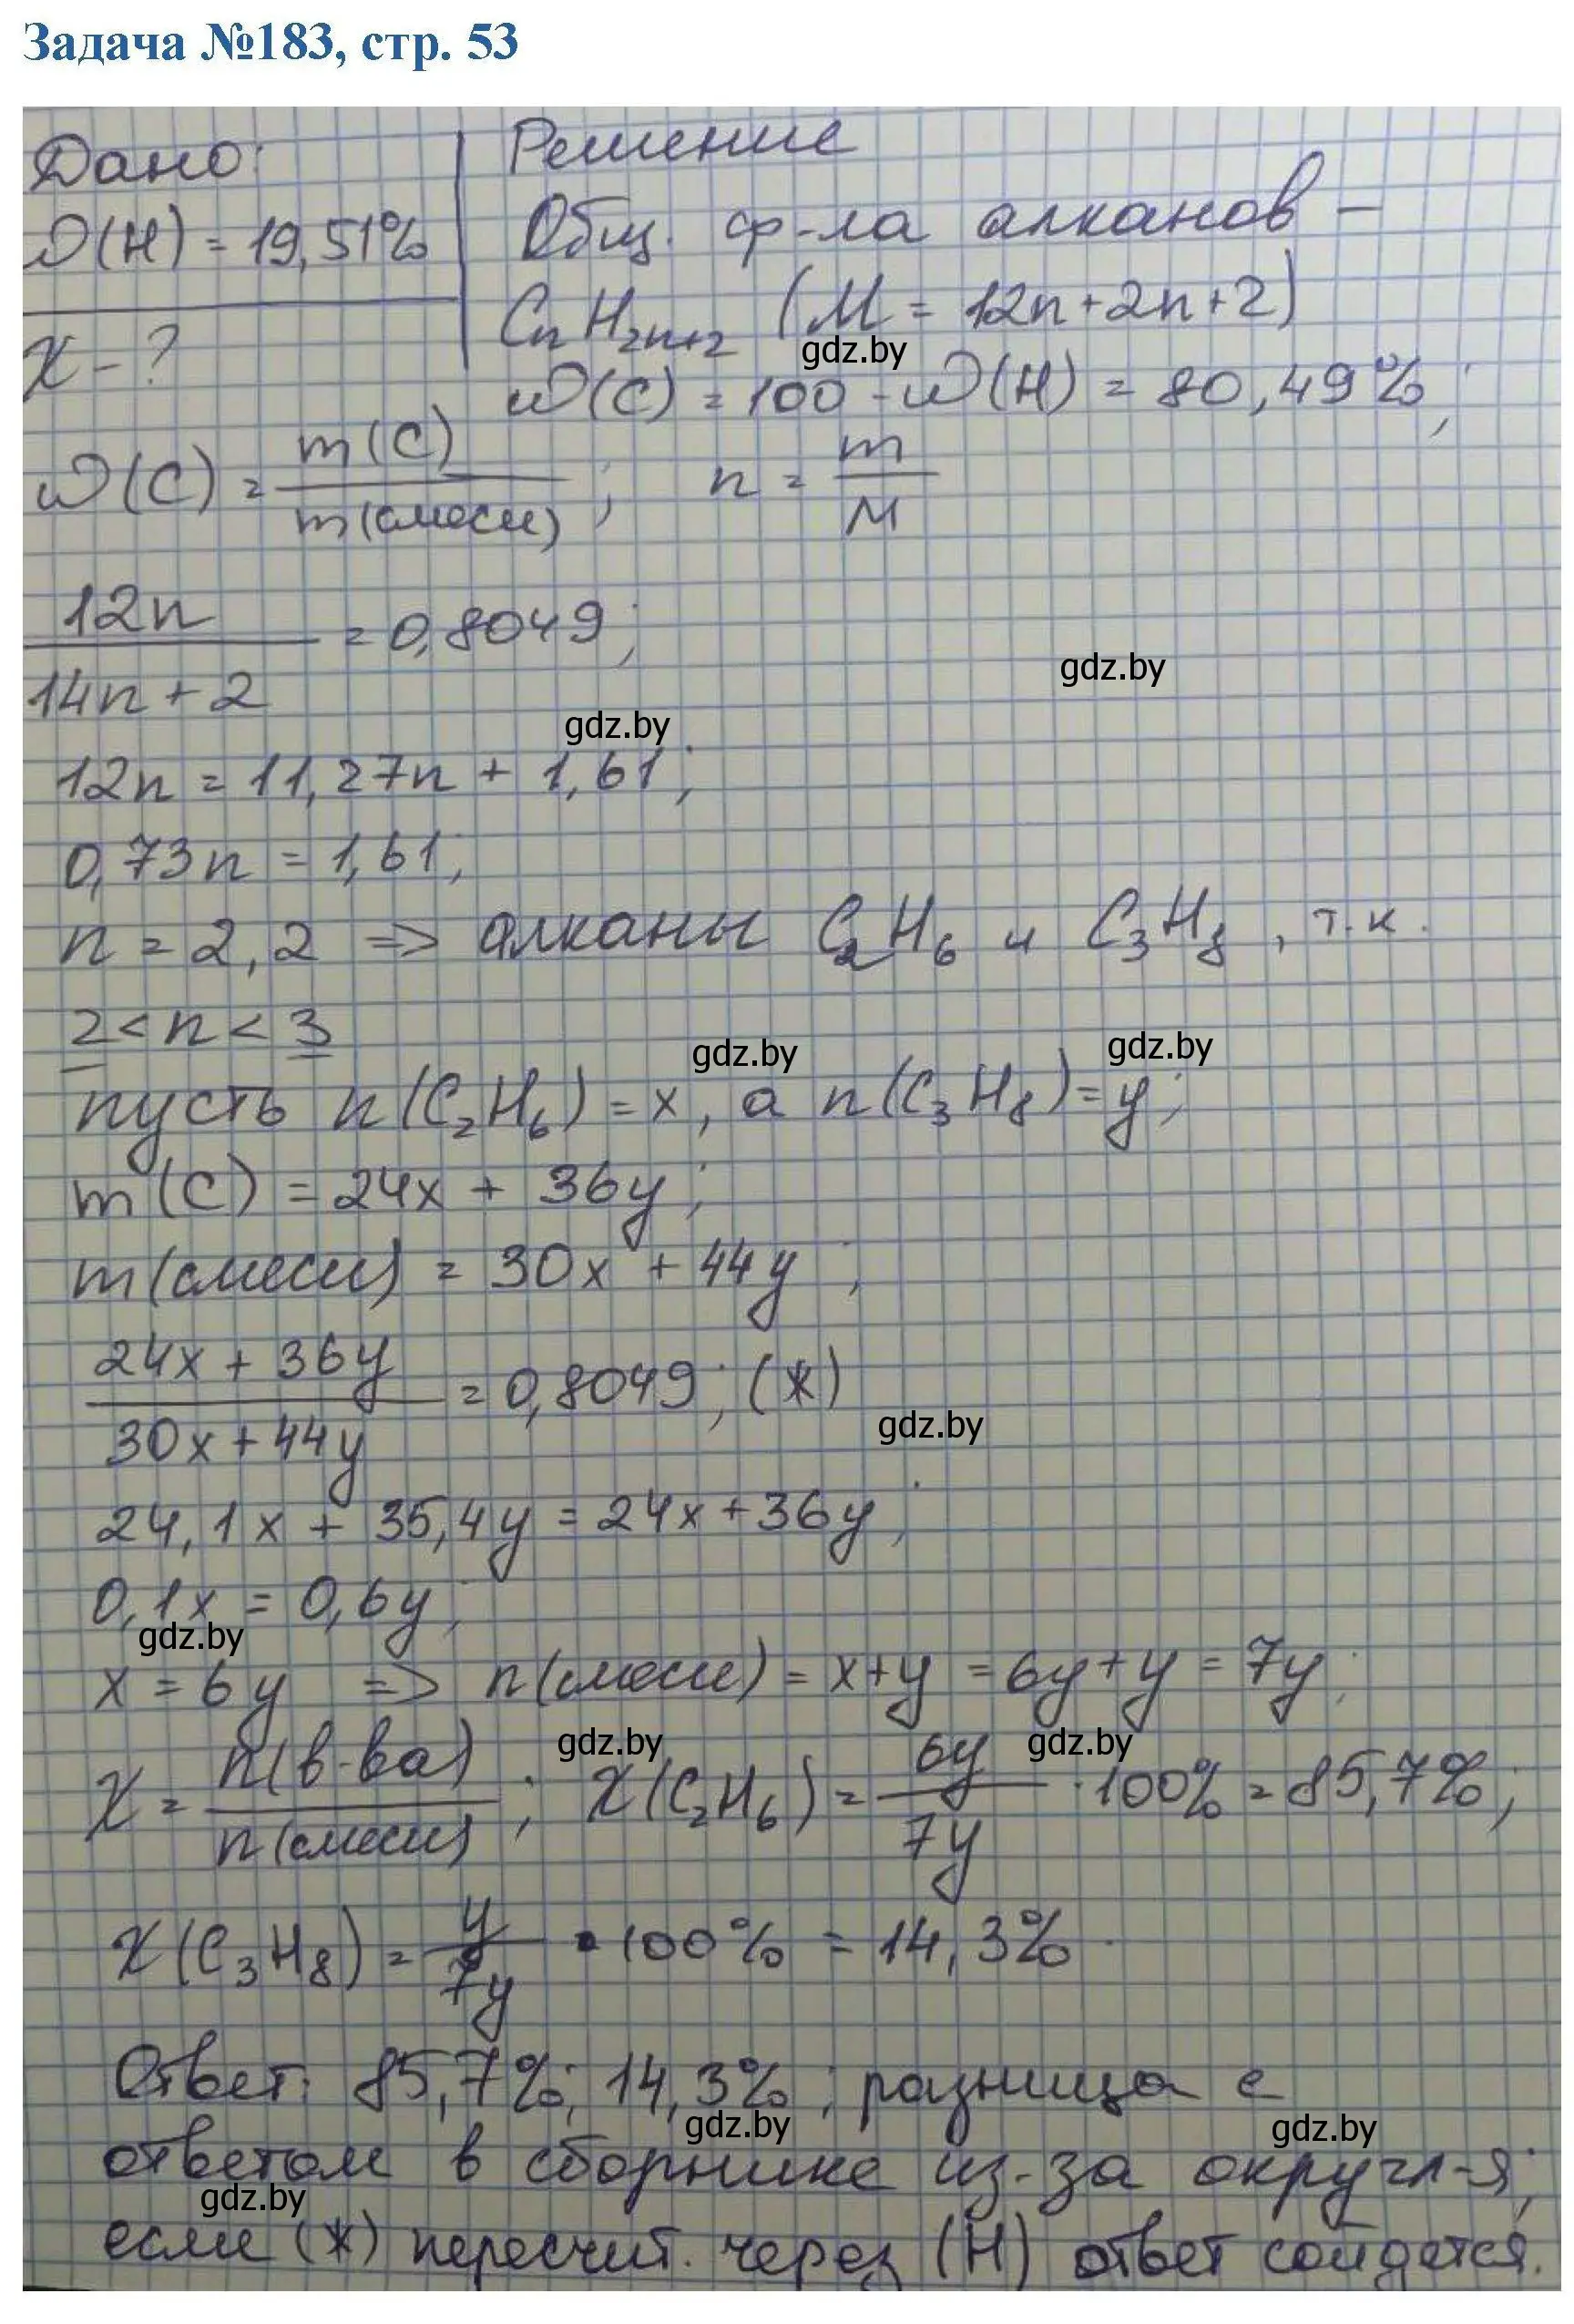 Задача №183, стр. 53
Дано:
ω(H) = 19,51%
χ - ?
Решение
Общ. ф-ла алканов -
CnH2n+2 (M = 12n+2n+2)
gdz.by
ω(C) = 100 - ω(H) = 80,49%;
ω(C) = m(C) / m(смеси) ; n = m / M
12n / 14n + 2 = 0,8049;
gdz.by
gdz.by
12n = 11,27n + 1,61;
0,73n = 1,61;
n = 2,2 => алканы C2H6 и C3H8, т.к.
2 < n < 3
gdz.by gdz.by
пусть n(C2H6) = x, а n(C3H8) = y;
m(C) = 24x + 36y;
m(смеси) = 30x + 44y;
24x + 36y / 30x + 44y = 0,8049; (*)
gdz.by
24,1x + 35,4y = 24x + 36y;
0,1x = 0,6y;
gdz.by
x = 6y => n(смеси) = x+y = 6y+y = 7y;
gdz.by gdz.by
χ = n(в-ва) / n(смеси) ; χ(C2H6) = 6y / 7y · 100% = 85,7%;
χ(C3H8) = y / 7y · 100% = 14,3%.
Ответ: 85,7%; 14,3%; разница с
gdz.by gdz.by
ответом в сборнике из-за округл-я;
gdz.by
если (*) пересчит. через (H) ответ сойдется.